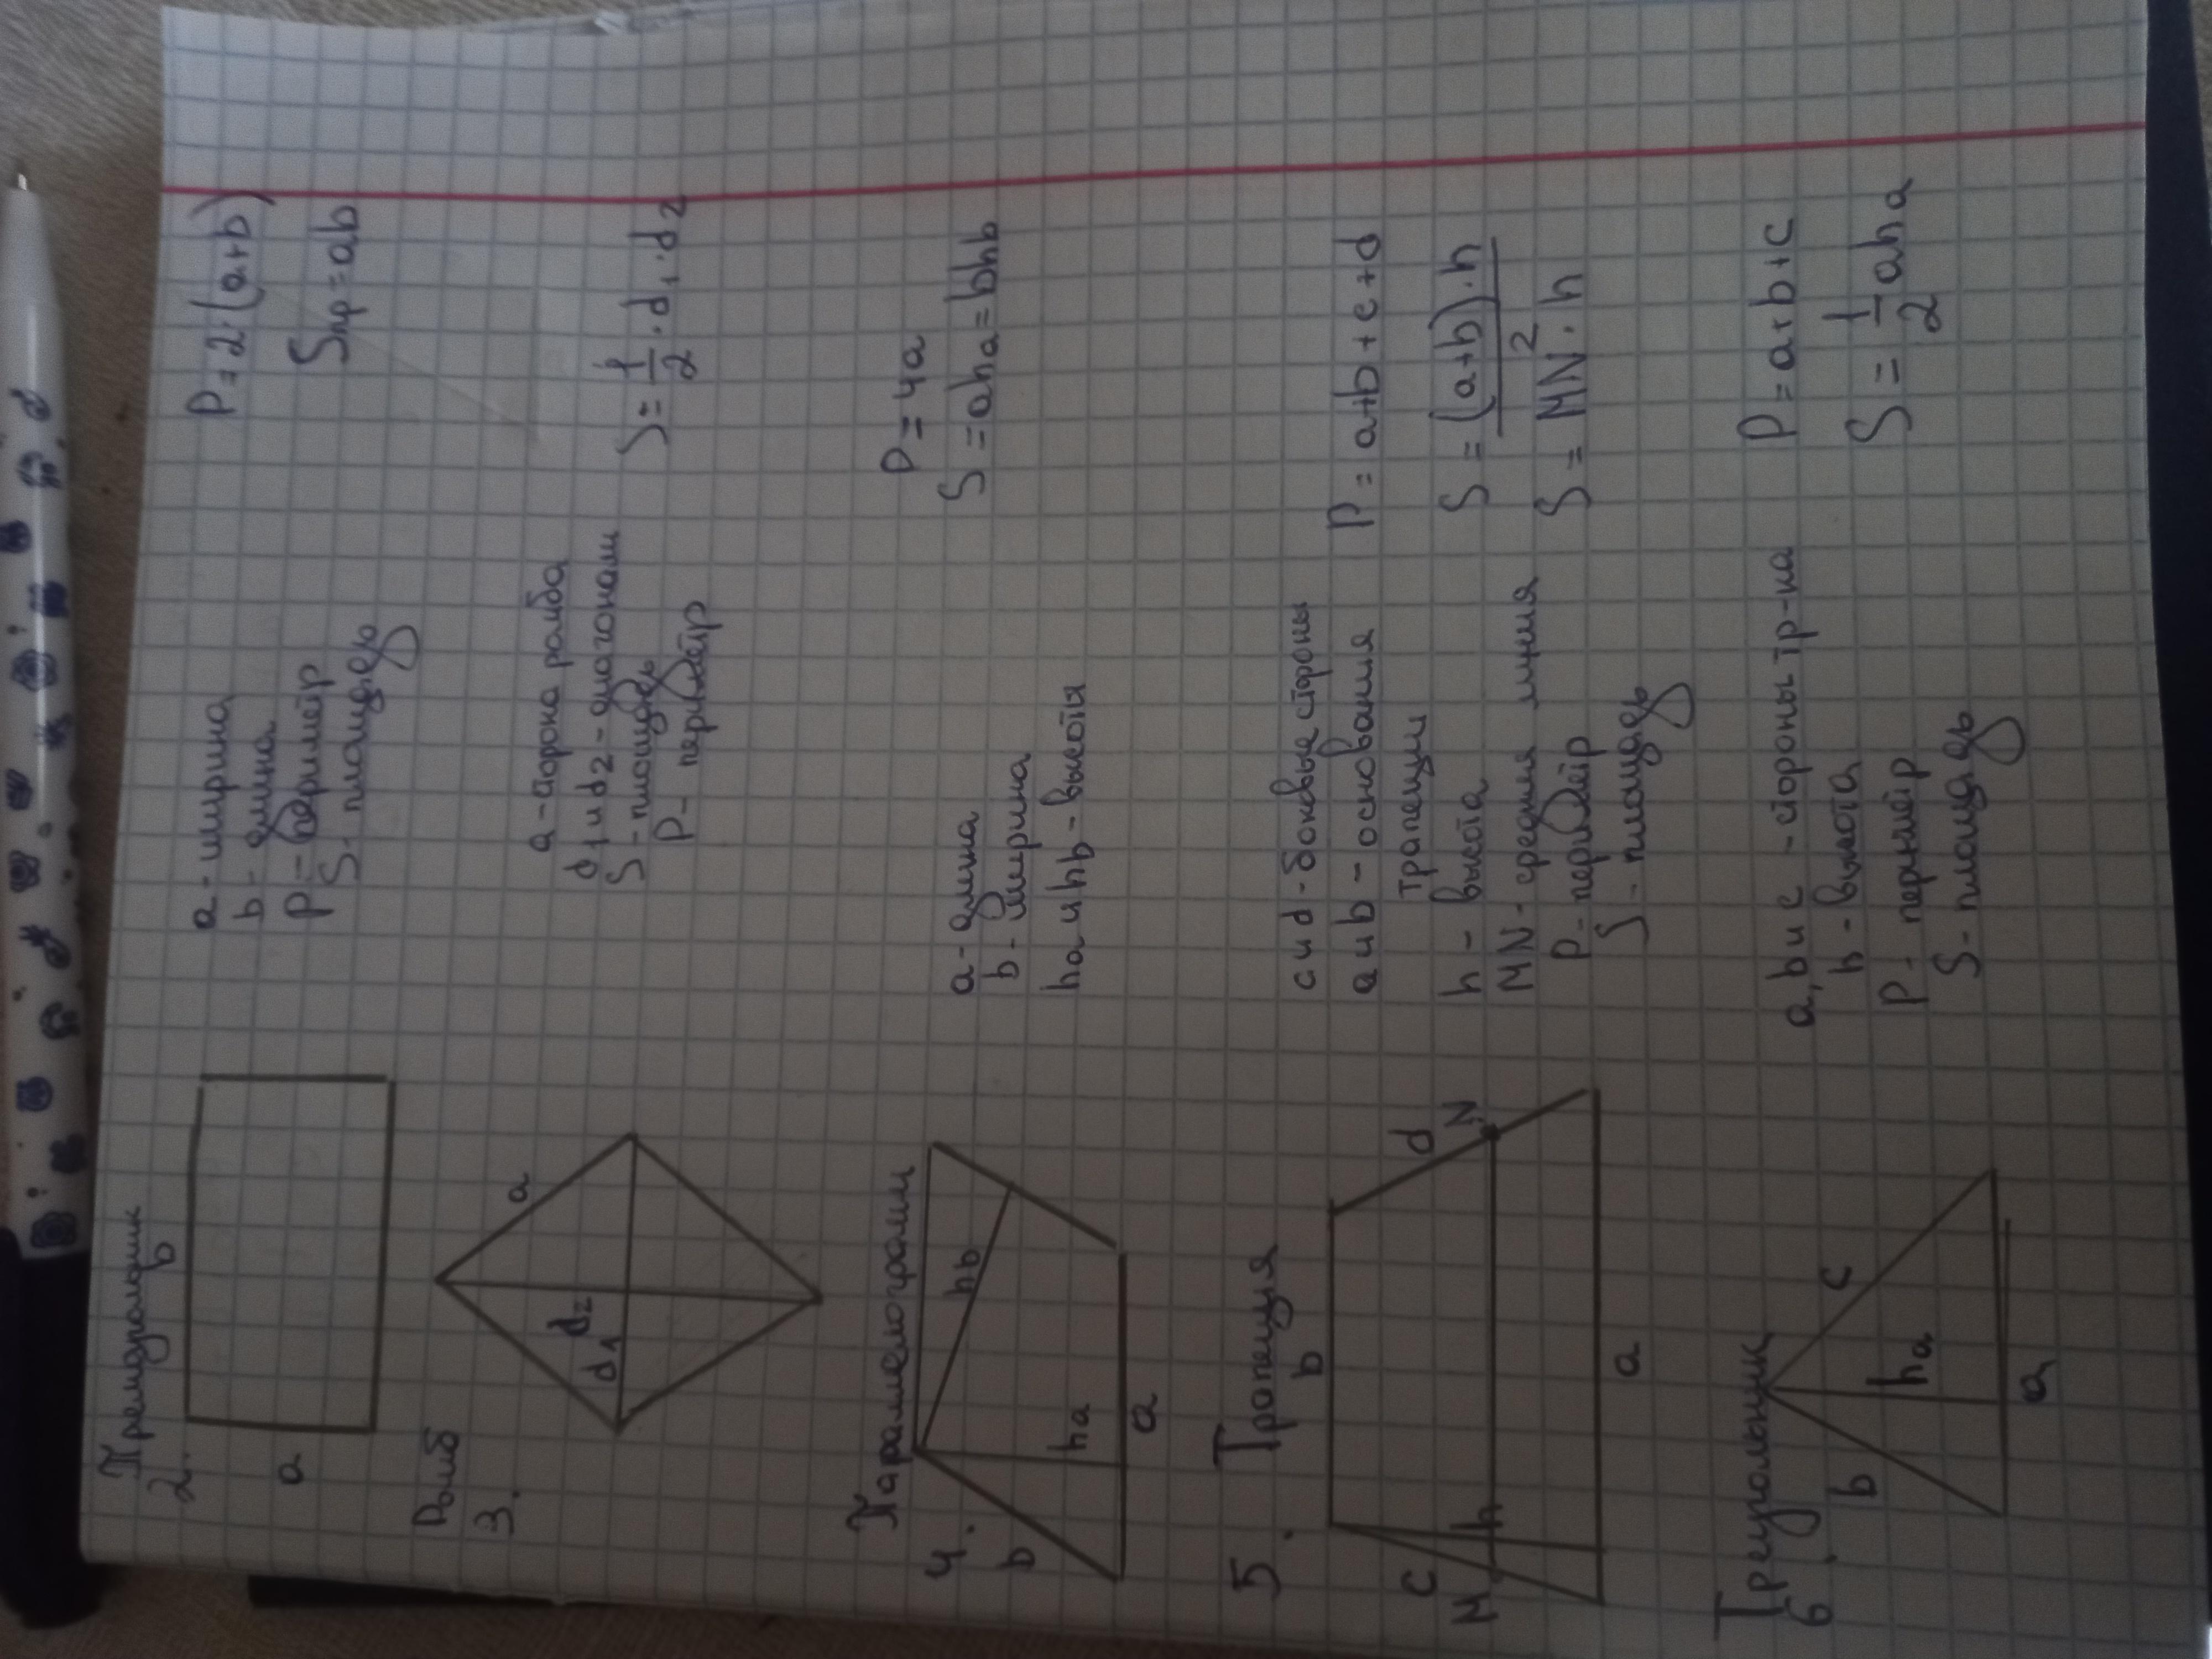 Прямоугольник
2.
b
a
a - ширина
b - длина
P - периметр
S - площадь
P = 2·(a+b)
Sпр = ab
Ромб
3.
a
d2
d1
a - сторона ромба
d1 и d2 - диагонали
S - площадь
P - периметр
S = 1/2 · d1 · d2
Параллелограмм
4.
b
hb
ha
a
a - длина
b - ширина
ha и hb - высоты
P = 4a
S = aha = bhb
5. Трапеция
b
c
d
M
h
N
a
c и d - боковые стороны
a и b - основания
трапеции
h - высота
MN - средняя линия
P - периметр
S - площадь
P = a+b+c+d
S = (a+b)·h / 2
S = MN · h
Треугольник
6.
b
c
ha
a
a, b и c - стороны тр-ка
h - высота
P - периметр
S - площадь
P = a+b+c
S = 1/2 aha